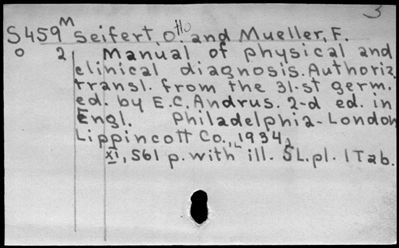 3
S459 M Seifert, Otto and Mueller, F.
o 2 Manual of physical and
clinical diagnosis. Authoriz.
transl. from the 31-st germ.
ed. by E.C. Andrus. 2-d ed. in
Engl. Philadelphia-London
Lippincott Co., 1934,
XI, 561 p. with ill. 5 L. pl. 1 Tab.